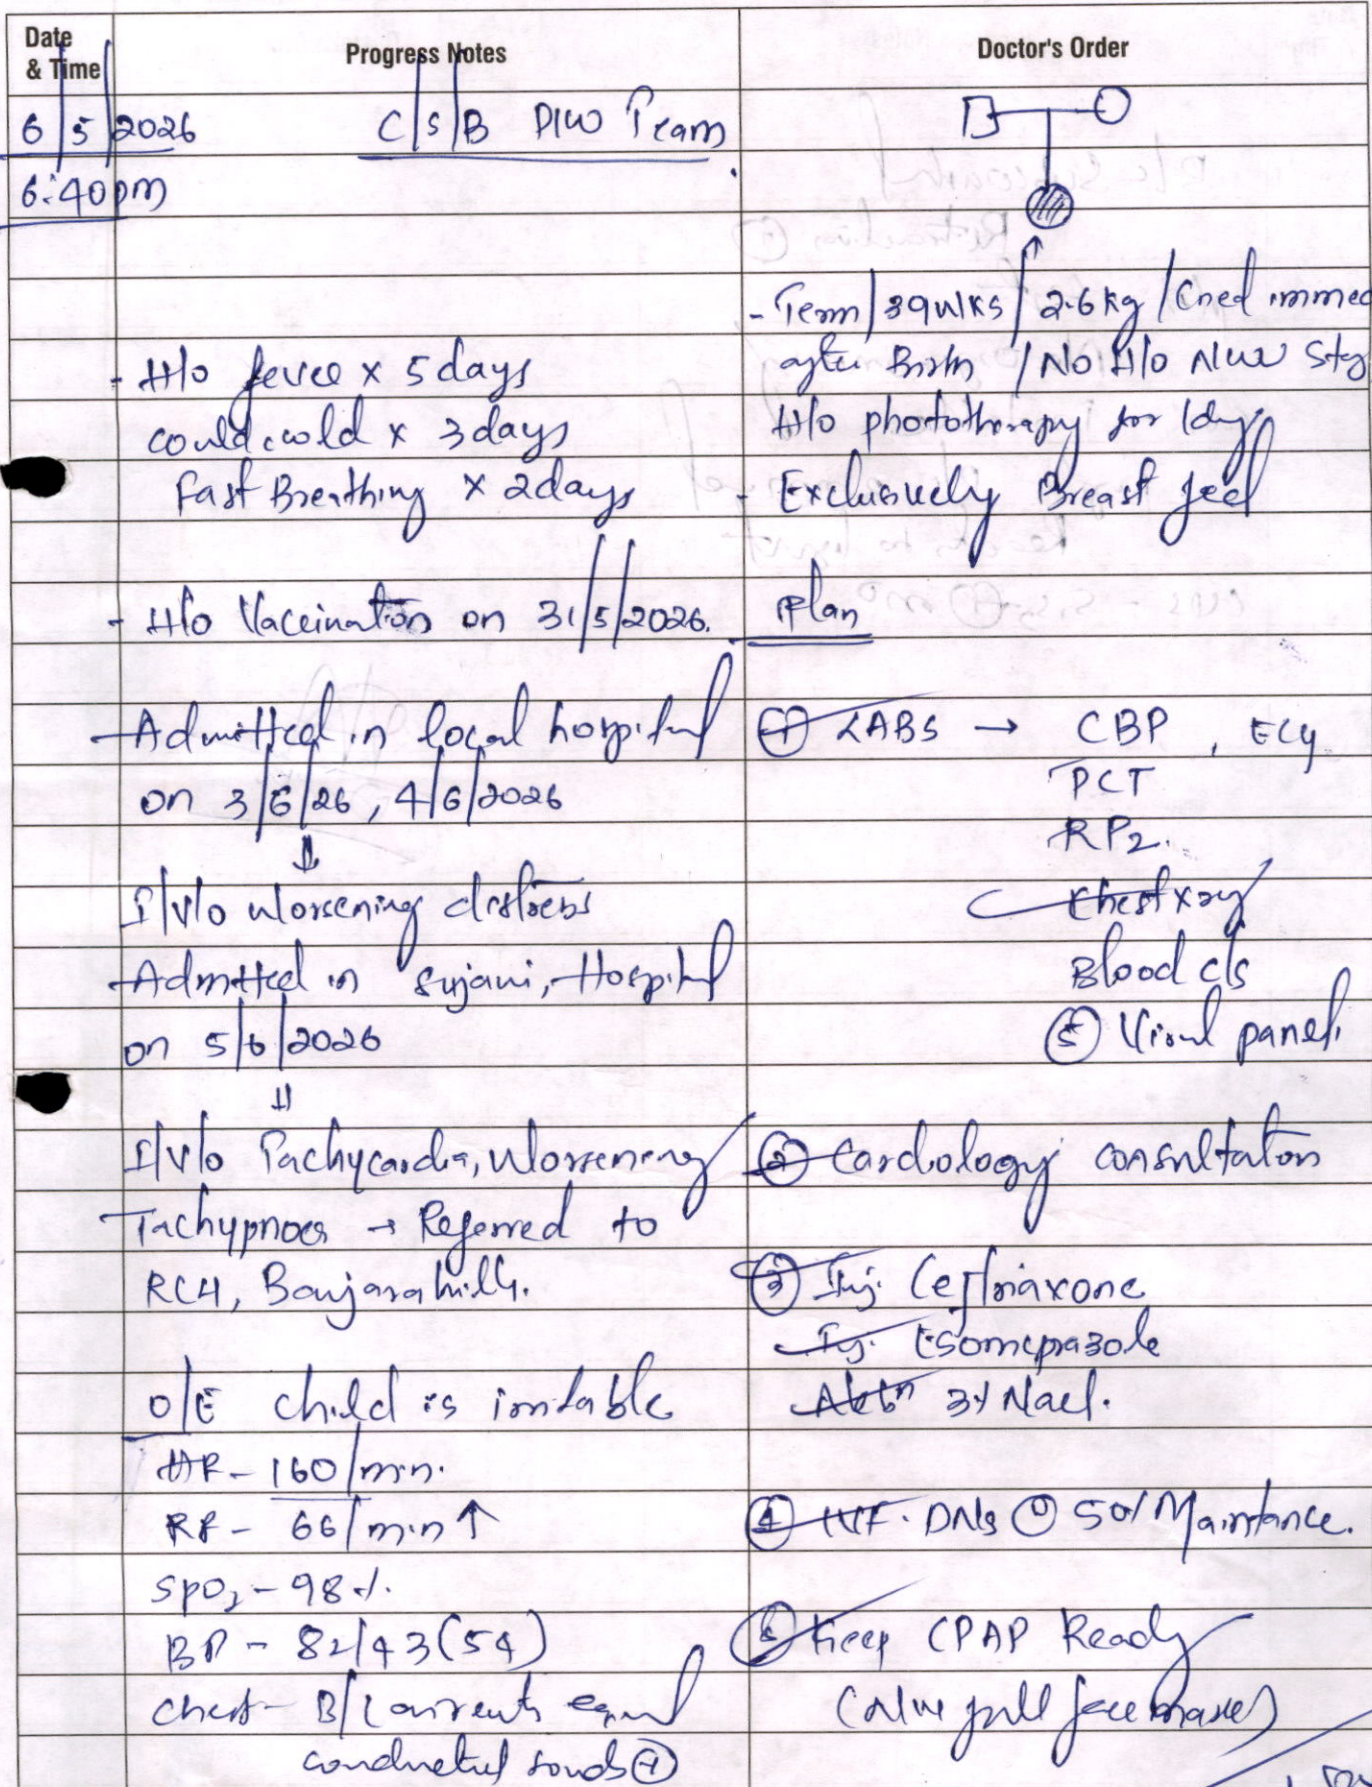 Date & Time
Progress Notes
Doctor's Order
6/5/2026
C/S/B PICU Team
6:40pm
- H/o fever x 5 days
could cold x 3 days
Fast Breathing x 2 days
- H/o Vaccination on 31/5/2026.
- Admitted in local hospital
on 3/6/26, 4/6/2026
↓
I/v/o worsening distress
- Admitted in Sujani, Hospital
on 5/6/2026
⇓
I/v/o Tachycardia, worsening
Tachypnoea → Referred to
RCH, Banjarahills.
O/E child is irritable
HR - 160/min.
RR - 66/min ↑
SpO2 - 98%
BP - 82/43 (54)
Chest - B/L airentry equal
conducted sounds ⊕
- Term / 39 wks / 2.6 kg / Cried immed
after Birth / No H/o NICU Stay
H/o phototherapy for 1 day
- Exclusively Breast feed
Plan
① LABS → CBP, ECG
PCT
RP2.
Chest xray
Blood c/s
Viral panel.
② Cardiology consultation
③ Inj. Ceftriaxone
Inj. Esomeprazole
3% Nacl.
④ IVF. DNS 50% Maintance.
⑤ Keep CPAP Ready
full face mask)